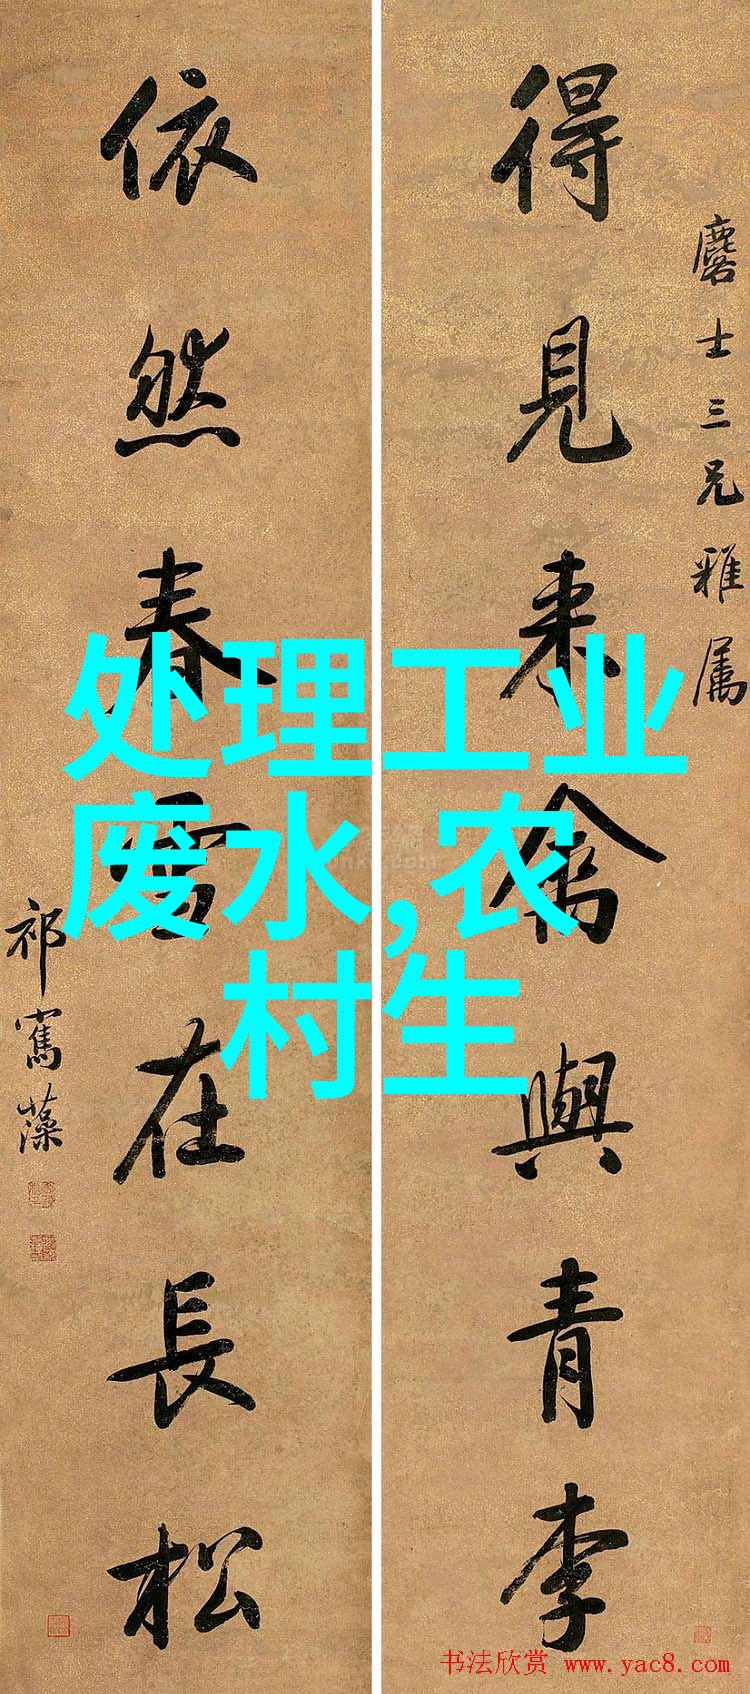 得見來禽與青李
麐士三兄雅屬
依然春雪在長松
祁寯藻
处理工业
废水,农
村生
书法欣赏 www.yac8.com